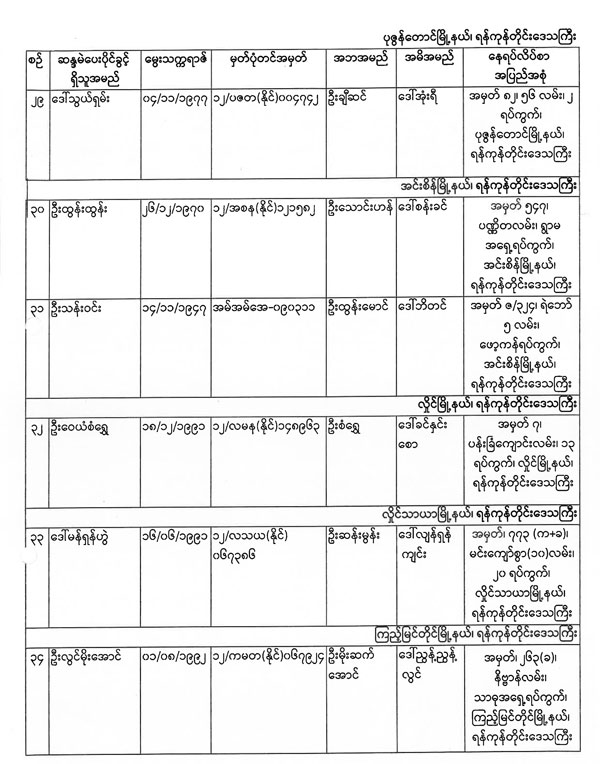 ပုဇွန်တောင်မြို့နယ်၊ ရန်ကုန်တိုင်းဒေသကြီး
စဉ် ဆန္ဒမဲပေးပိုင်ခွင့် ရှိသူအမည် မွေးသက္ကရာဇ် မှတ်ပုံတင်အမှတ် အဘအမည် အမိအမည် နေရပ်လိပ်စာ အပြည်အစုံ
၂၉ ဒေါ်သွယ်ရှမ်း ၀၄/၁၁/၁၉၇၇ ၁၂/ပဇတ(နိုင်)၀၀၄၇၄၂ ဦးချီဆင် ဒေါ်အုံးရီ အမှတ် ၈၂၊ ၅၆ လမ်း၊ ၂
ရပ်ကွက်၊
ပုဇွန်တောင်မြို့နယ်၊
ရန်ကုန်တိုင်းဒေသကြီး
အင်းစိန်မြို့နယ်၊ ရန်ကုန်တိုင်းဒေသကြီး
၃၀ ဦးထွန်းထွန်း ၂၆/၁၂/၁၉၇၀ ၁၂/အစန(နိုင်)၁၂၁၅၈၂ ဦးသောင်းဟန် ဒေါ်စန်းခင် အမှတ် ၅၄၇၊
ပဏ္ဏိတလမ်း၊ ရွာမ
အရှေ့ရပ်ကွက်၊
အင်းစိန်မြို့နယ်၊
ရန်ကုန်တိုင်းဒေသကြီး
၃၁ ဦးသန်းဝင်း ၁၄/၁၁/၁၉၄၇ အမ်အမ်အေ-၀၉၀၃၁၁ ဦးထွန်းမောင် ဒေါ်ဘိတင် အမှတ် ဇ/၃၂၄၊ ရဲဘော်
၅ လမ်း၊
ဖော့ကန်ရပ်ကွက်၊
အင်းစိန်မြို့နယ်၊
ရန်ကုန်တိုင်းဒေသကြီး
လှိုင်မြို့နယ်၊ ရန်ကုန်တိုင်းဒေသကြီး
၃၂ ဦးဝေယံစံရွှေ ၁၈/၁၂/၁၉၉၁ ၁၂/လမန(နိုင်)၁၄၈၉၆၃ ဦးစံရွှေ ဒေါ်ခင်နှင်း အမှတ် ၇၊
စော ပန်းခြံကျောင်းလမ်း၊ ၁၃
ရပ်ကွက်၊ လှိုင်မြို့နယ်၊
ရန်ကုန်တိုင်းဒေသကြီး
လှိုင်သာယာမြို့နယ်၊ ရန်ကုန်တိုင်းဒေသကြီး
၃၃ ဒေါ်မန်ရှန်ဟွဲ ၁၆/၀၆/၁၉၉၁ ၁၂/လသယ(နိုင်) ဦးဆန်းမွန်း ဒေါ်လျန်ရှန် အမှတ်၊ ၇၇၃ (က+ခ)၊
၀၆၇၃၈၆ ကျင်း မင်းကျော်စွာ(၁၀)လမ်း၊
၂၀ ရပ်ကွက်၊
လှိုင်သာယာမြို့နယ်၊
ရန်ကုန်တိုင်းဒေသကြီး
ကြည့်မြင်တိုင်မြို့နယ်၊ ရန်ကုန်တိုင်းဒေသကြီး
၃၄ ဦးလွင်မိုးအောင် ၀၁/၀၈/၁၉၉၂ ၁၂/ကမတ(နိုင်)၀၆၇၉၂၄ ဦးမိုးဆက် ဒေါ်ညွန့်ညွန့် အမှတ်၊ ၂၆၃(ခ)၊
အောင် လွင် နိဗ္ဗာန်လမ်း၊
သာဓုအရှေ့ရပ်ကွက်၊
ကြည့်မြင်တိုင်မြို့နယ်၊
ရန်ကုန်တိုင်းဒေသကြီး